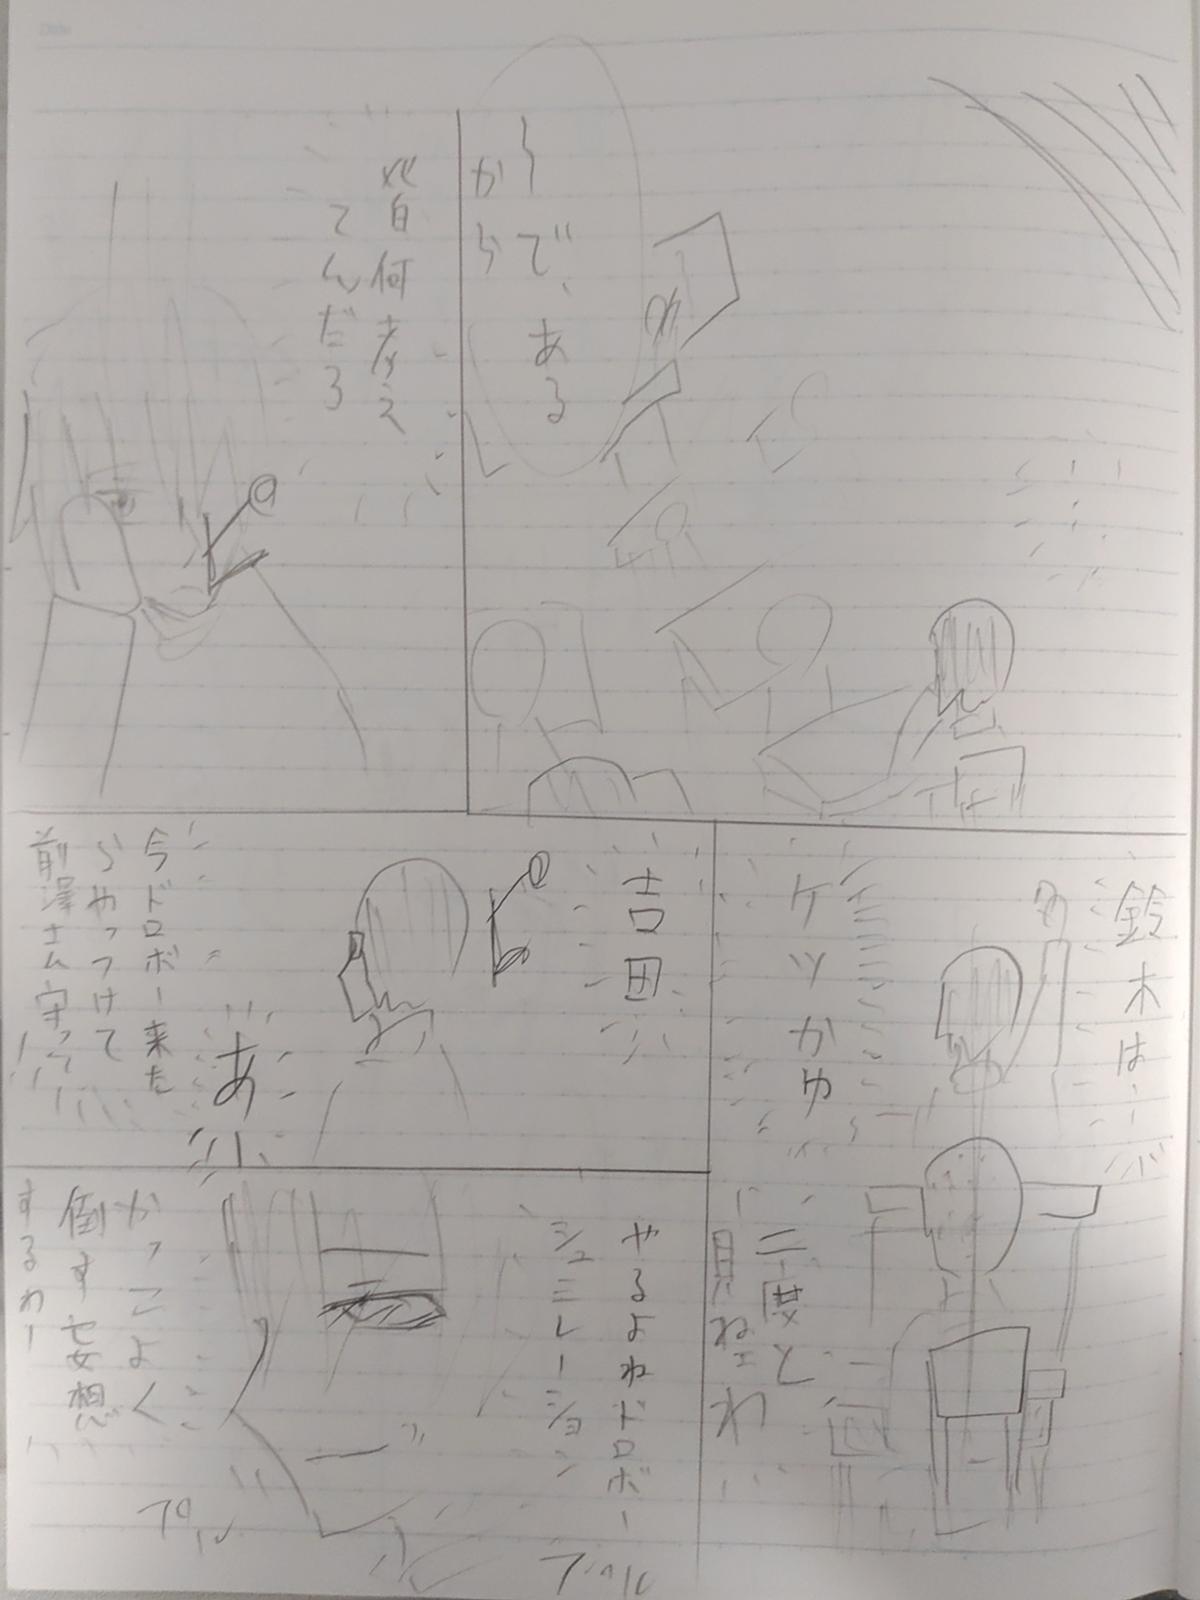 Date
〜で、ある
から
皆何考え
てんだろ
鈴木は…
ケツかゆ
二度と
見ねェわ
吉田
あ
今ドロボー来た
らやっつけて
前澤さん守って
やるよねドロボー
シュミレーション
かっこよく
倒す妄想
するわー
プルル
プルル